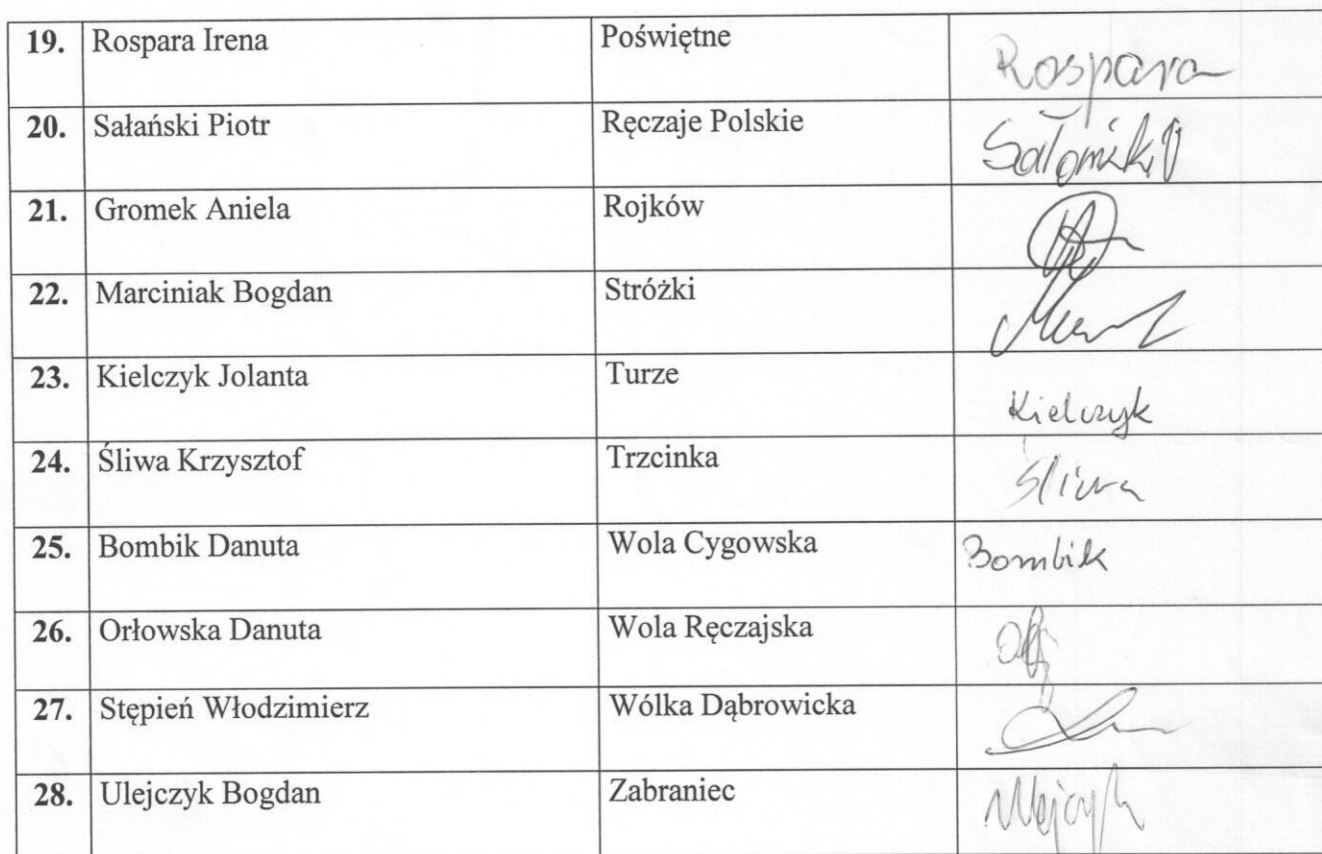 19. Rospara Irena Poświętne Rospara
20. Sałański Piotr Ręczaje Polskie
21. Gromek Aniela Rojków
22. Marciniak Bogdan Stróżki
23. Kielczyk Jolanta Turze Kielczyk
24. Śliwa Krzysztof Trzcinka Śliwa
25. Bombik Danuta Wola Cygowska Bombik
26. Orłowska Danuta Wola Ręczajska
27. Stępień Włodzimierz Wólka Dąbrowicka
28. Ulejczyk Bogdan Zabraniec Ulejczyk